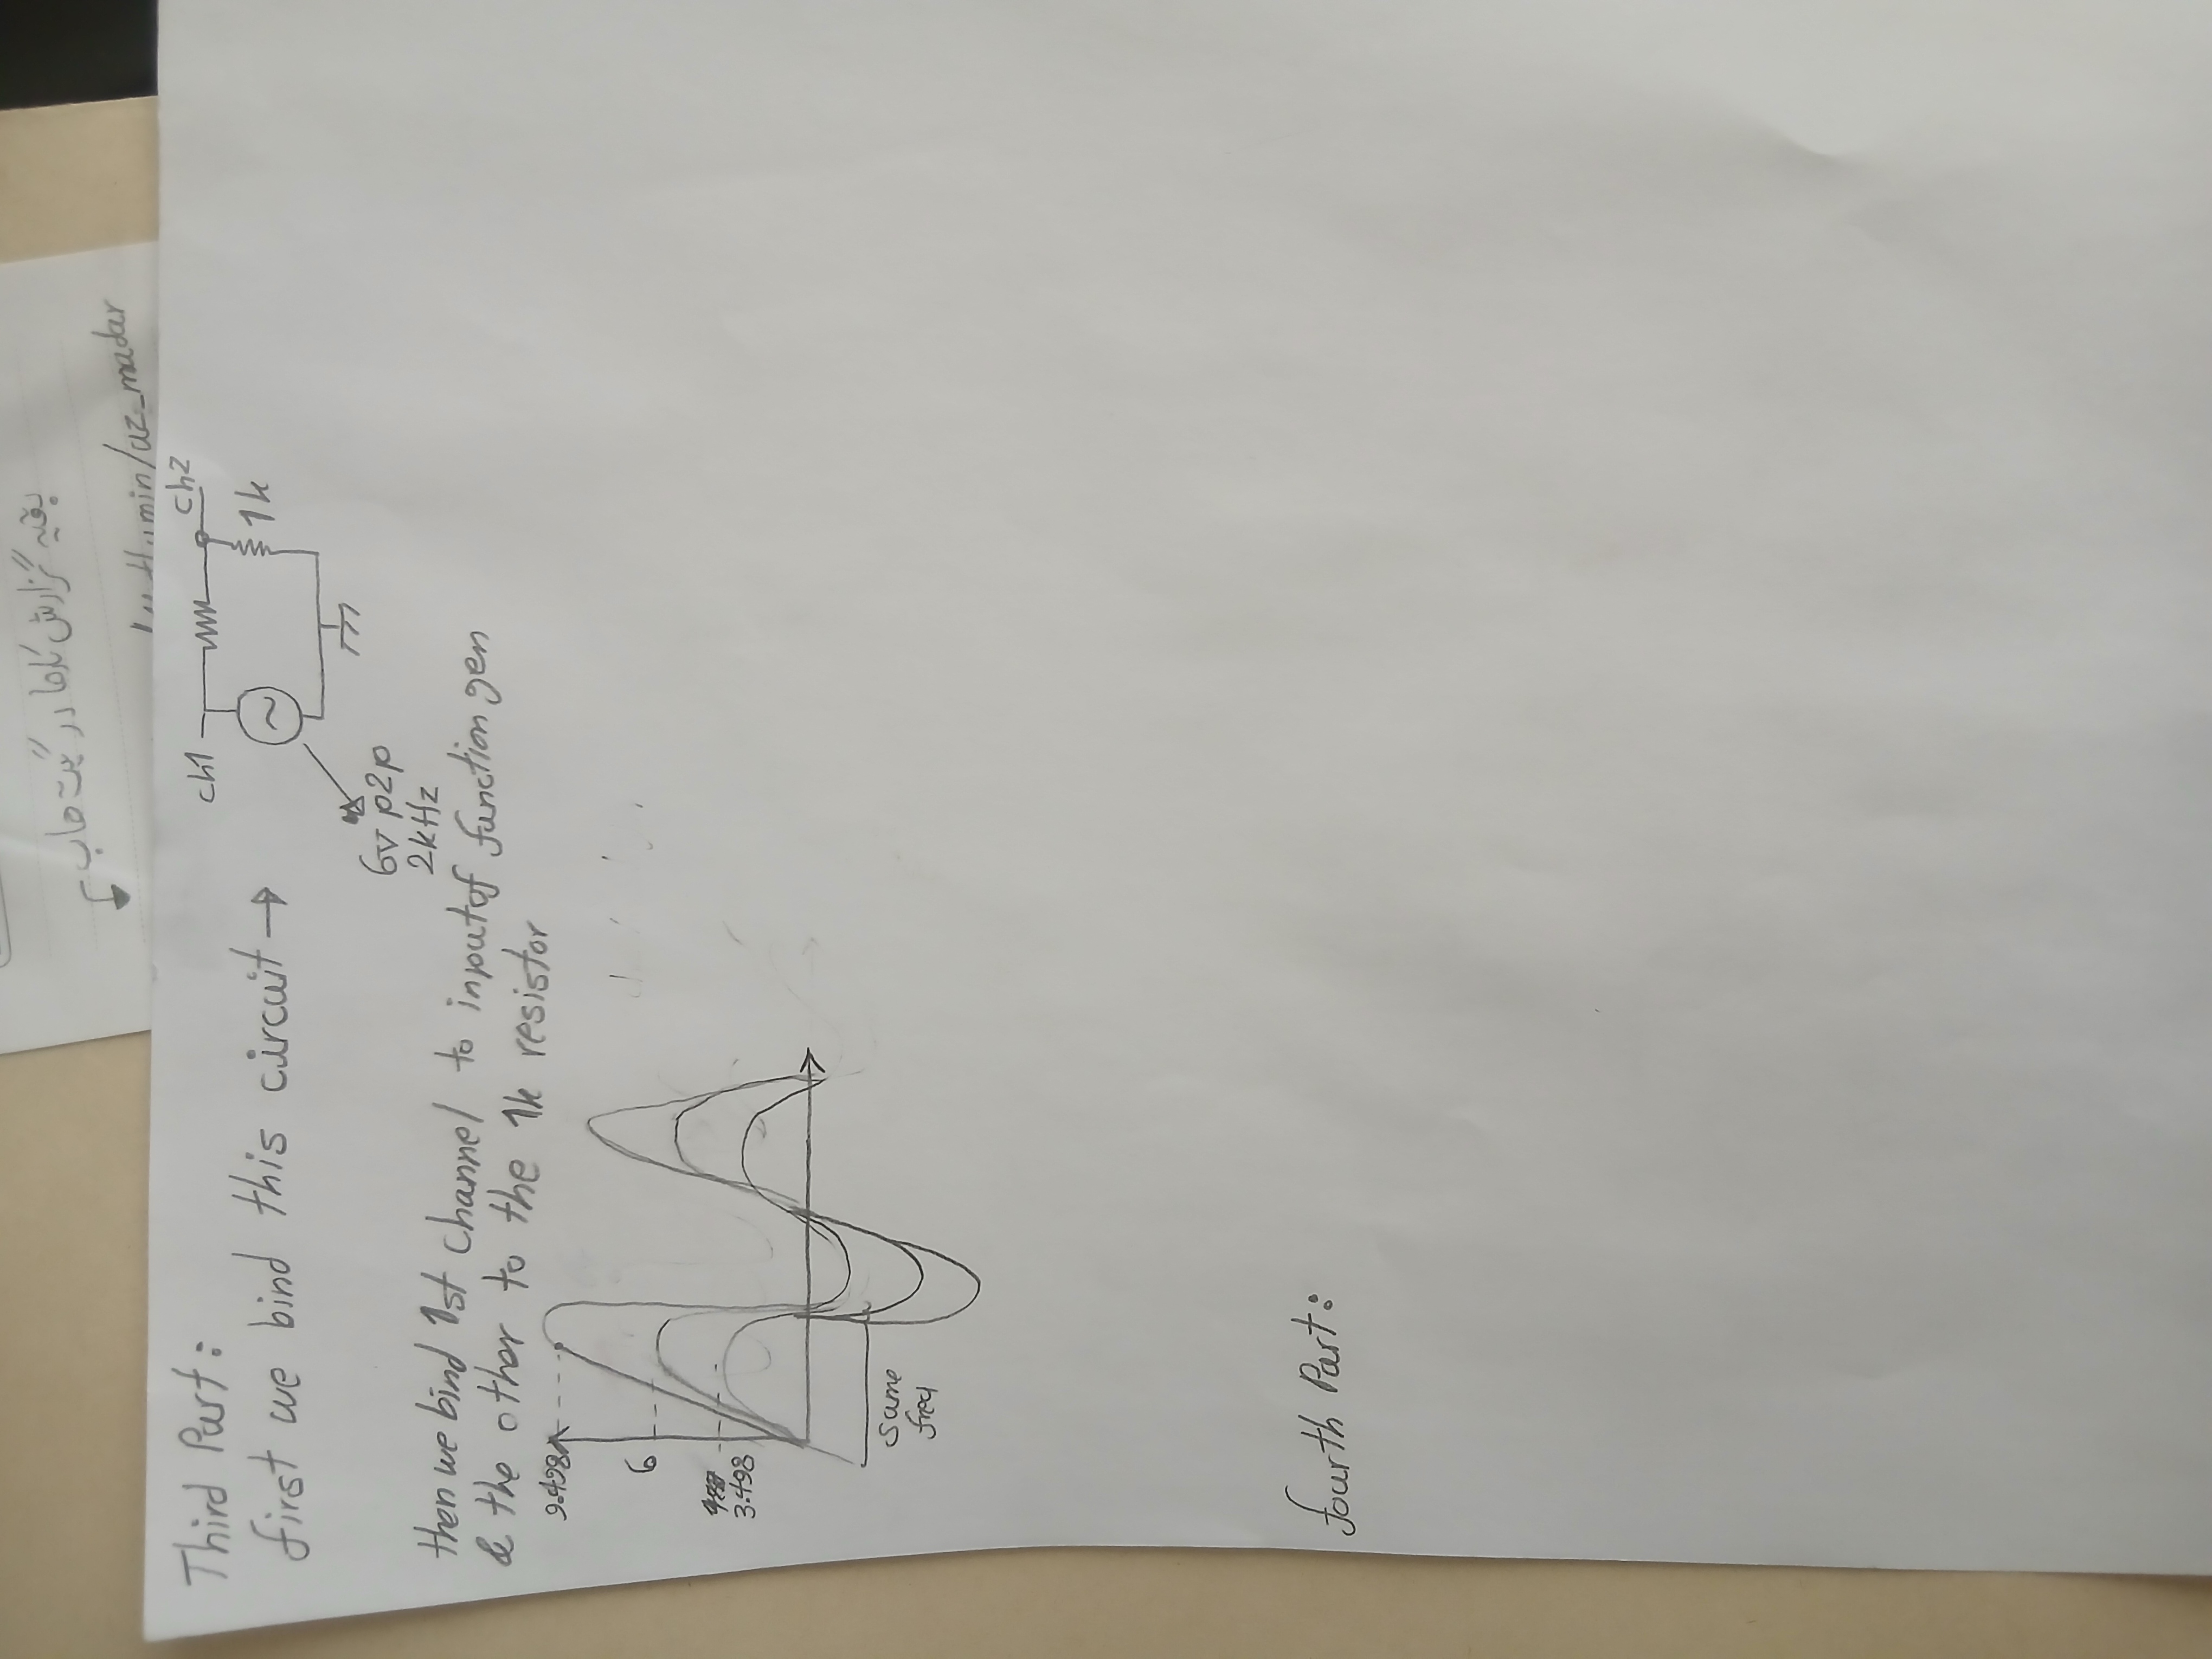 بقیه گزارش کارها در گیت هاب
min/az_madar
Third Part:
first we bind this circuit →
ch1
ch2
1k
6v p2p
2kHz
then we bind 1st channel to input of function gen
& the other to the 1k resistor
9.498
6
3.498
same
freq
fourth Part: